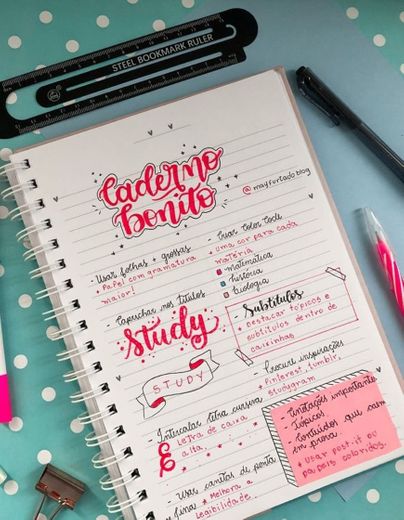 STEEL BOOKMARK RULER
caderno
bonito
@mayfurtado.blog
- Usar folhas + grossas
+ Papel com gramatura
maior!
- Caprichar nos títulos
study
STUDY
- Intercalar letra cursiva
e letra de caixa
alta.
- Usar canetas de ponta
fina:
+ Melhora a
legibilidade.
- Criar Color Code
+ uma cor para cada
matéria
matemática
história
biologia
Subtítulos
+ Destacar tópicos e
subtítulos dentro de
caixinhas
- Procure inspirações
+ Pinterest, tumblr,
studygram
- Anotações importantes
- Tópicos
- Conteúdos que caem
em prova.
+ usar post-it ou
papeis coloridos.